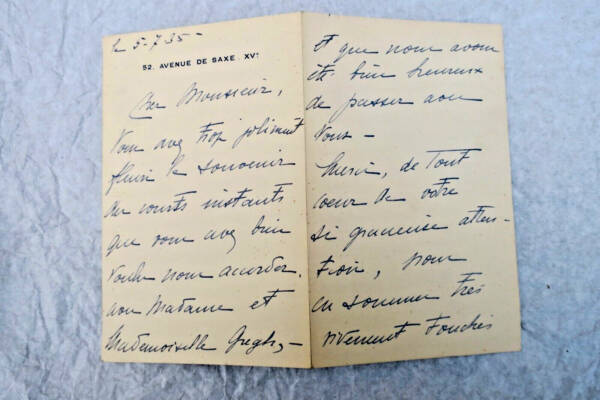 le 5-7-35-
52. AVENUE DE SAXE. XVe
Cher Monsieur,
Vous avez trop joliment
fleuri le souvenir
des courts instants
que vous avez bien
voulu nous accorder,
avec Madame et
Mademoiselle Gregh, -
et que nous avons
été bien heureux
de passer avec
vous -
Merci, de tout
cœur de votre
si gracieuse atten-
tion, nous
en sommes très
vivement touchés